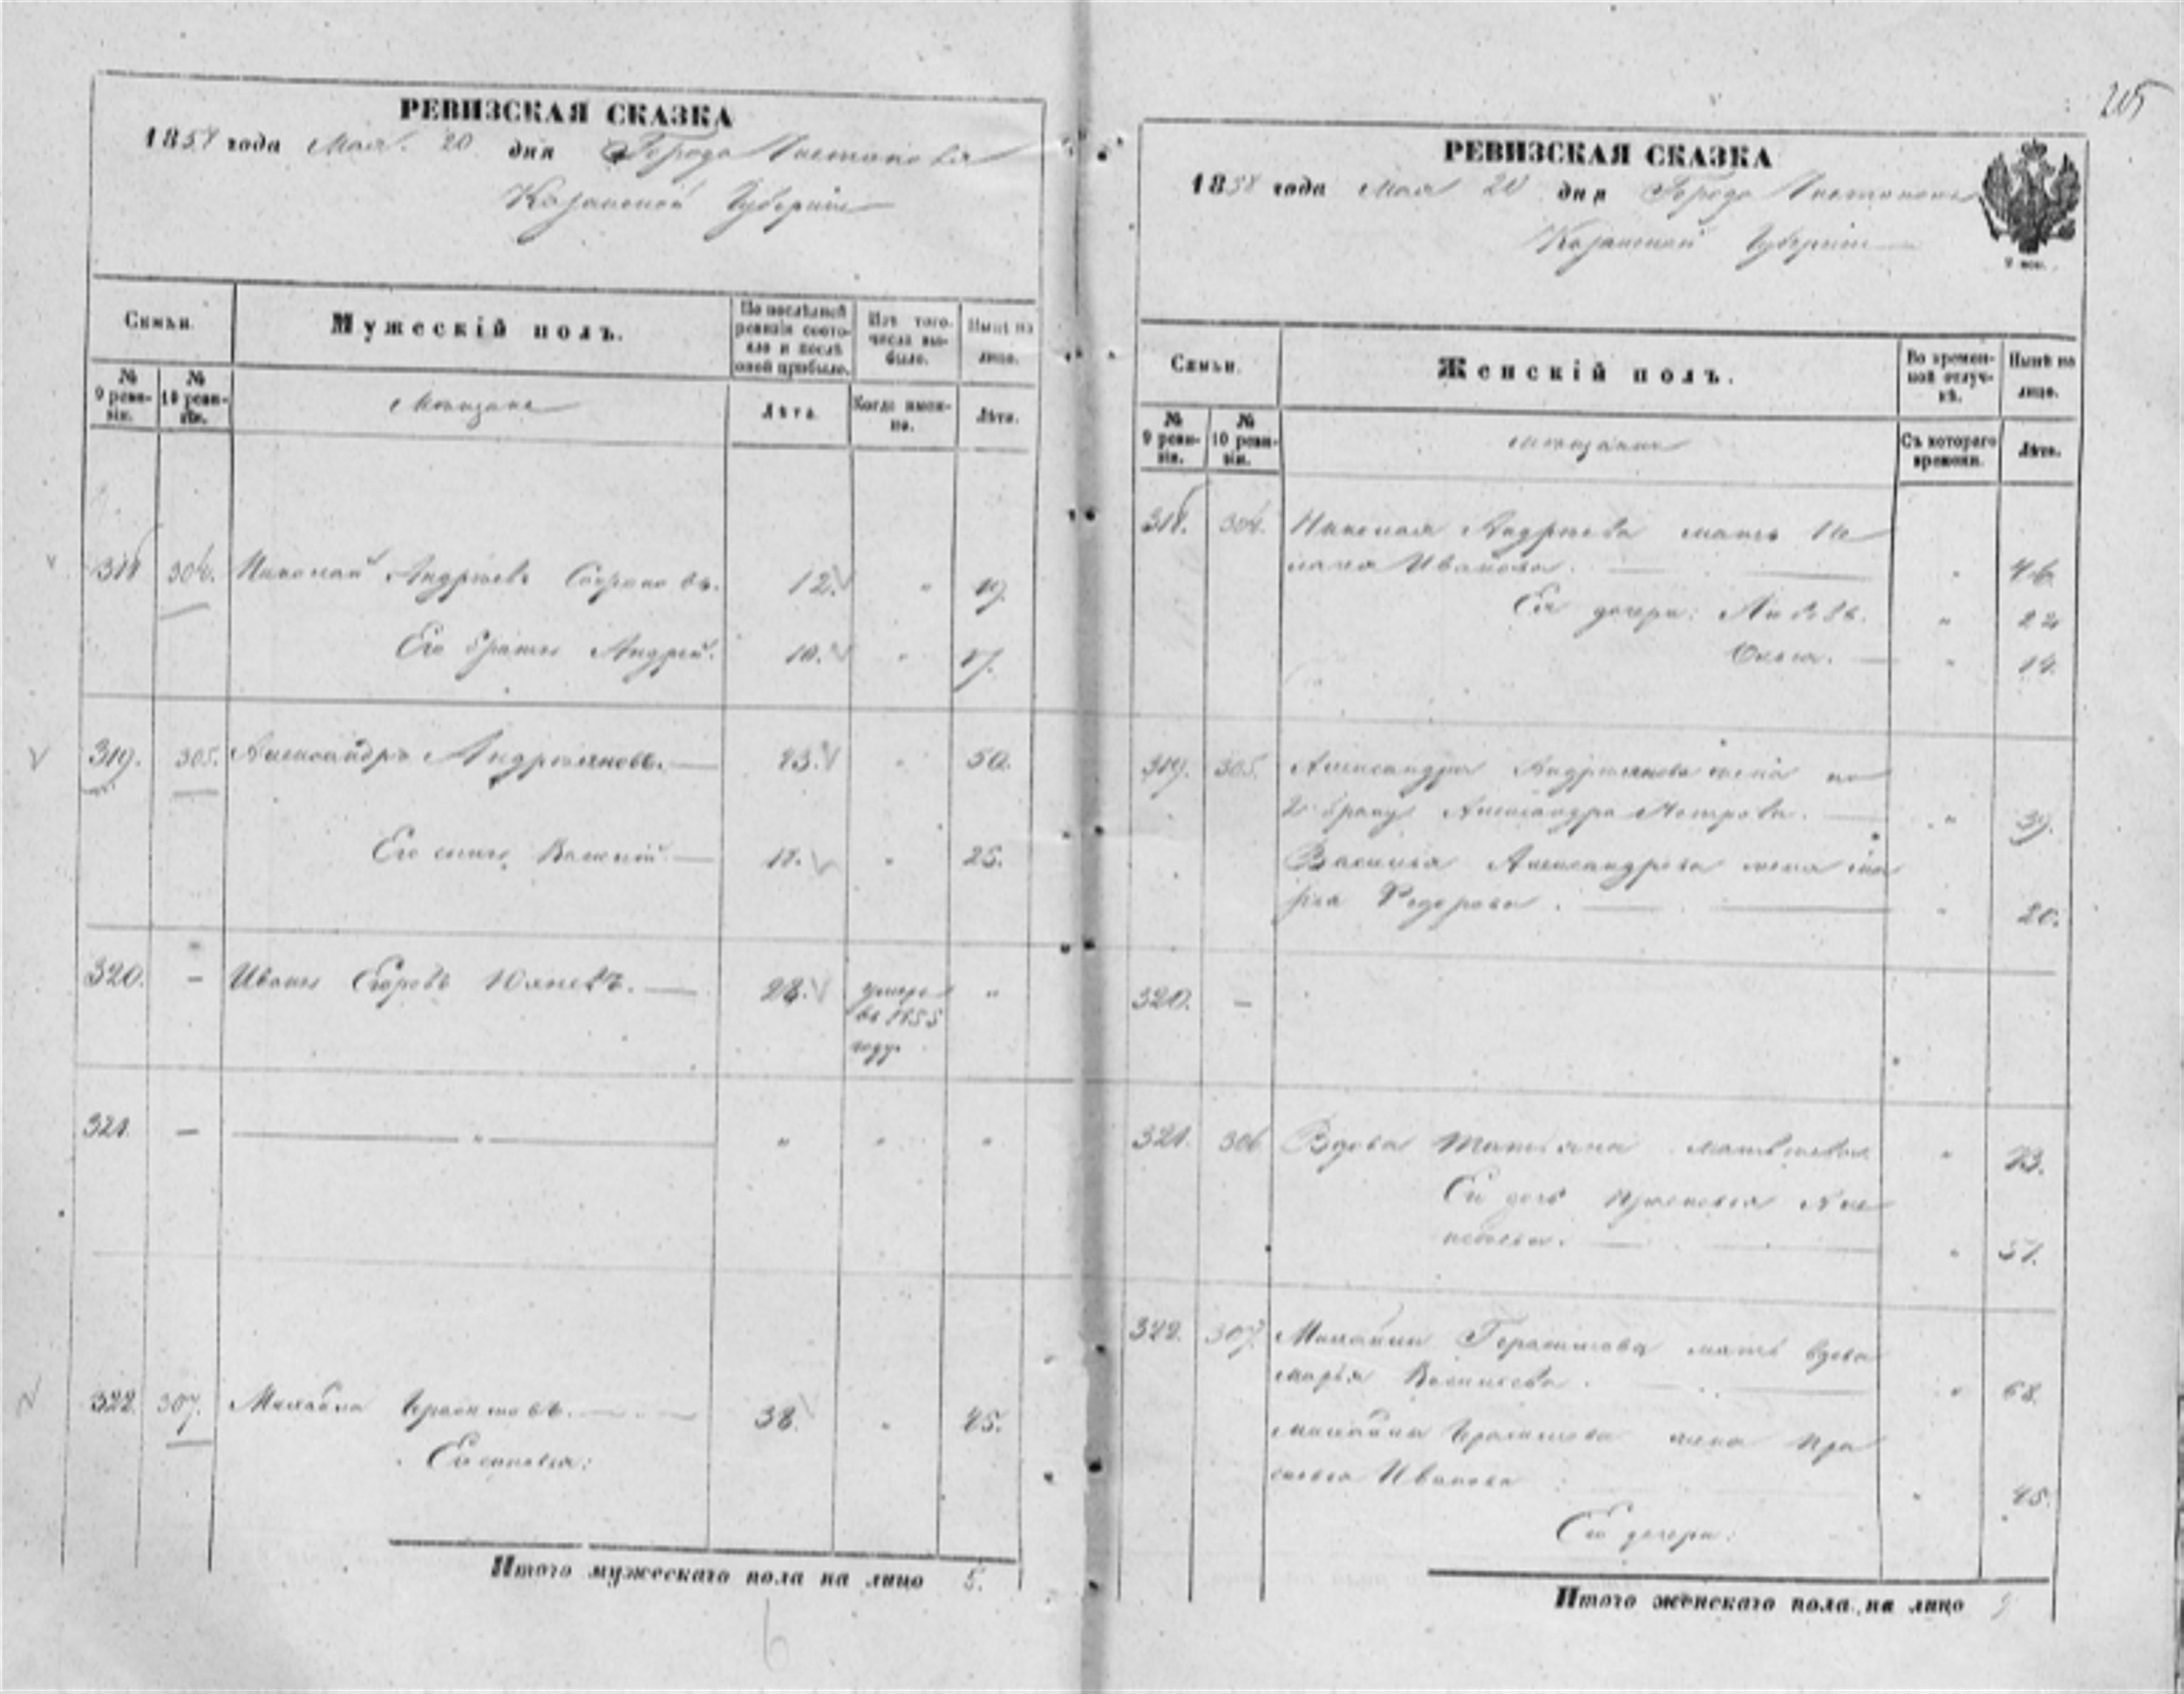 205
РЕВИЗСКАЯ СКАЗКА
1858 года Мая 20 дня Города Чистополя
Казанской Губернии
Семьи.
Мужескій полъ.
По послѣдней ревизіи состояло и послѣ оной прибыло.
Изъ того числа выбыло.
Нынѣ на лицо.
№ 9 ревизіи.
№ 10 ревизіи.
Мещане
Лѣта.
Когда именно.
Лѣта.
318 304. Николай Андреевъ 12. " 19.
Его братъ Андрей. 10. " 17.
319. 305. Александръ Андреяновъ. 43. " 50.
Его сынъ Василій. 18. " 25.
320. — Иванъ Егоровъ 28. умеръ "
въ 1855
году
321. — " " " "
322. 307. Михайла Герасимовъ. 38. " 45.
Его сыновья:
Итого мужескаго пола на лицо 5.
6
РЕВИЗСКАЯ СКАЗКА
1858 года Мая 20 дня Города Чистополя
Казанской Губернии
Семьи.
Женскій полъ.
Во временной отлучкѣ.
Нынѣ на лицо.
№ 9 ревизіи.
№ 10 ревизіи.
мещане
Съ котораго времени.
Лѣта.
318. 304. Николая Андреева мать
Иванова. " 46.
Ея дочери: " 22
Ольга. " 14.
319. 305. Александра Андреянова жена по
2 браку Александра Петрова. " 39.
Василья Александрова жена Ма
рья Федорова. " 20.
320. —
321. 306 Вдова Татьяна Матвеева " 73.
Ея дочь Прасковья
" 51.
322. 307. Михайлы Герасимова мать вдова
Марья Васильева. " 68.
Михайлы Герасимова жена Пра
сковья Иванова " 45.
Его дочери:
Итого женскаго пола на лицо 9